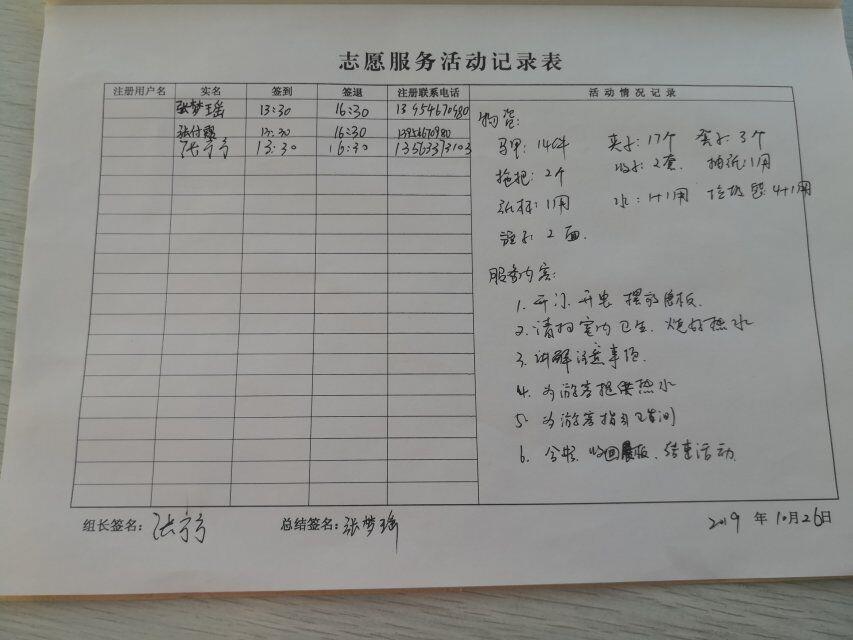 志愿服务活动记录表
注册用户名 实名 签到 签退 注册联系电话 活动情况记录
张梦瑶 13:30 16:30 13954670980
张付 13:30 16:30 13954670980
张宁宁 13:30 16:30 13563373103
物资:
马甲: 14件 夹子: 17个 套子: 3个
拖把: 2个 2套 抽纸: 1用
纸杯: 1用 水: 1+1用 垃圾袋: 4+1用
旗子: 2面.
服务内容:
1. 开门、开电 摆放展板.
2. 清扫室内卫生. 烧好热水
3. 讲解注意事项.
4. 为游客提供热水
5. 为游客指引卫生间
6. 合影. 收回展板. 结束活动.
组长签名: 张宁宁 总结签名: 张梦瑶 2019 年 10月26日